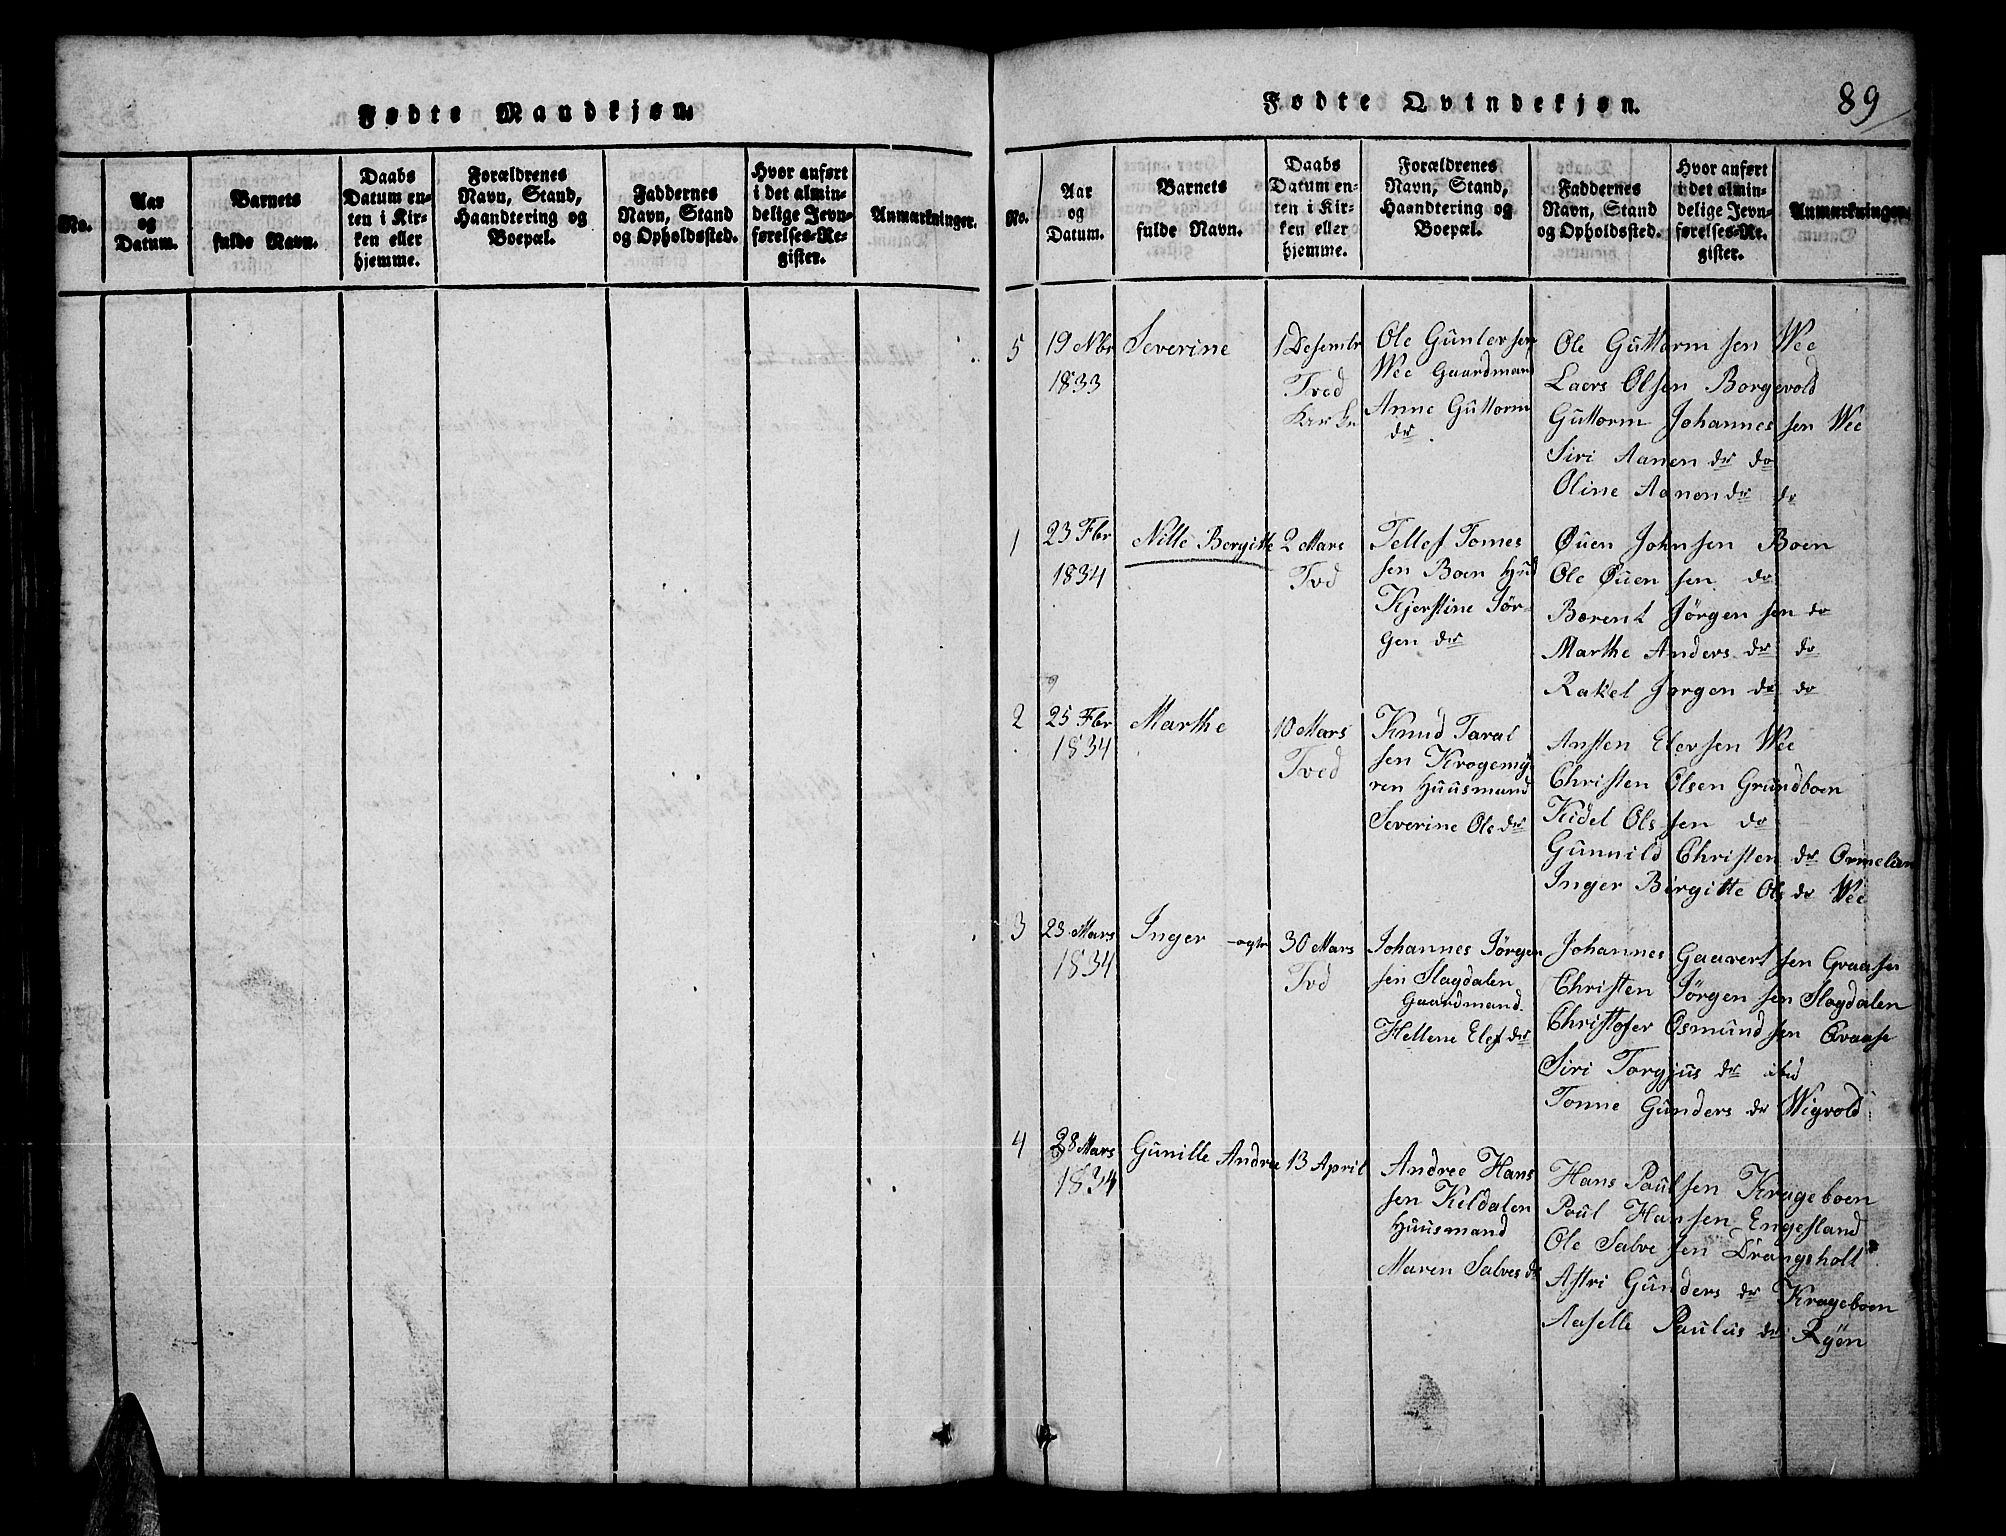 Fødte Mandkjøn.
No.
Aar og Datum.
Barnets fulde Navn.
Daabs Datum enten i Kirken eller hjemme.
Forældrenes Navn, Stand, Haandtering og Boepæl.
Faddernes Navn, Stand og Opholdssted.
Hvor anført i det almindelige Jevnførelses-Register.
Anmærkninger.
Fødte Qvindekjøn.
89
No.
Aar og Datum.
Barnets fulde Navn.
Daabs Datum enten i Kirken eller hjemme.
Forældrenes Navn, Stand, Haandtering og Boepæl.
Faddernes Navn, Stand og Opholdssted.
Hvor anført i det almindelige Jevnførelses-Register.
Anmærkninger.
5
19 Nbr
1833
Severine
1 Desembr
Tved
Kirke
Ole Gunlersen
Wee Gaardmand
Anne Guttorm
dr.
Ole Guttorm sen Wee
Laers Olsen Borgevold
Guttorm Johannes sen Wee
Siri Aanen dr do
Oline Aanen dr do
1
23 Fbr
1834
Nille Bergitte
2 Mars
Tvd
Tellef Tomes
sen Boen Hud
Kjerstine Jør-
gen dr
Øuen Johnsen Boen
Ole Øuen sen do
Berent Jørgen sen do
Marthe Anders dr do
Rakel Jørgen dr do
2
25 Fbr
1834
Marthe
10 Mars
Tved
Knud Taral
sen Krogemÿ
ren Huusmand
Severine Ole dr
Ansten Elersen Wee
Christen Olsen Grundboen
Kidel Ols sen do
Gunnild Christen dr Ormelien
Inger Birgitte Ols dr Wee
3
23 Mars
1834
Inger
30 Mars
Tvd
Johannes Jørgen
sen Slagdalen
Gaardmand.
Hellene Elef dr
Johannes Gaavert sen Graasen
Christen Jørgen sen Slogdalen
Christofer Osmund sen
Siri Torgjus dr ibid
Tonne Gunders dr Wigvold
4
28 Mars
1834
Gunille Andree
13 April
Andree Hans
sen Kildalen
Huusmand
Maren Salves dr
Hans Paul sen Krageboen
Poul Hansen Engesland
Ole Salve sen Drangsholt
Astri Gunders dr Krageboen
Aaselle Paulus dr Ryen